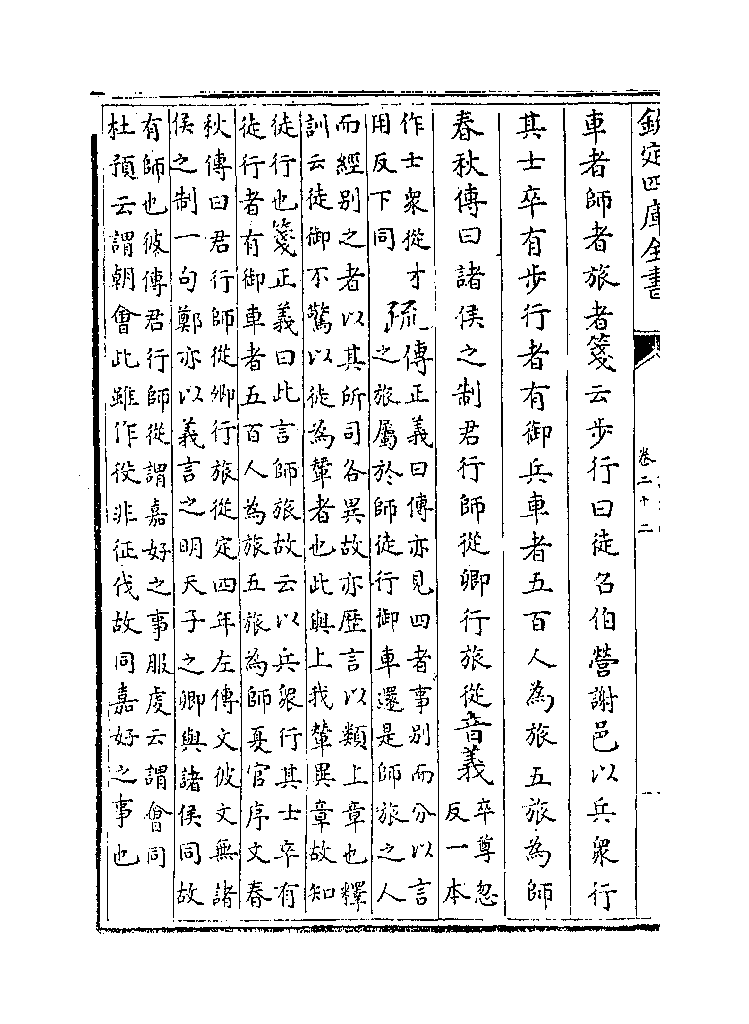 欽定四庫全書
卷二十二
車者師者旅者箋云步行曰徒召伯營謝邑以兵衆行
其士卒有步行者有御兵車者五百人為旅五旅為師
春秋傳曰諸侯之制君行師從卿行旅從音義
卒尊忽
反一本
作士衆從才
用反下同
疏
傳正義曰傳亦見四者事別而分以言
之旅屬於師徒行御車還是師旅之人
而經別之者以其所司各異故亦歷言以類上章也釋
訓云徒御不驚以徒為輦者也此與上我輦異章故知
徒行也箋正義曰此言師旅故云以兵衆行其士卒有
徒行者有御車者五百人為旅五旅為師夏官序文春
秋傳曰君行師從卿行旅從定四年左傳文彼文無諸
侯之制一句鄭亦以義言之明天子之卿與諸侯同故
有師也彼傳君行師從謂嘉好之事服虔云謂會同
杜預云謂朝會此雖作役非征伐故同嘉好之事也